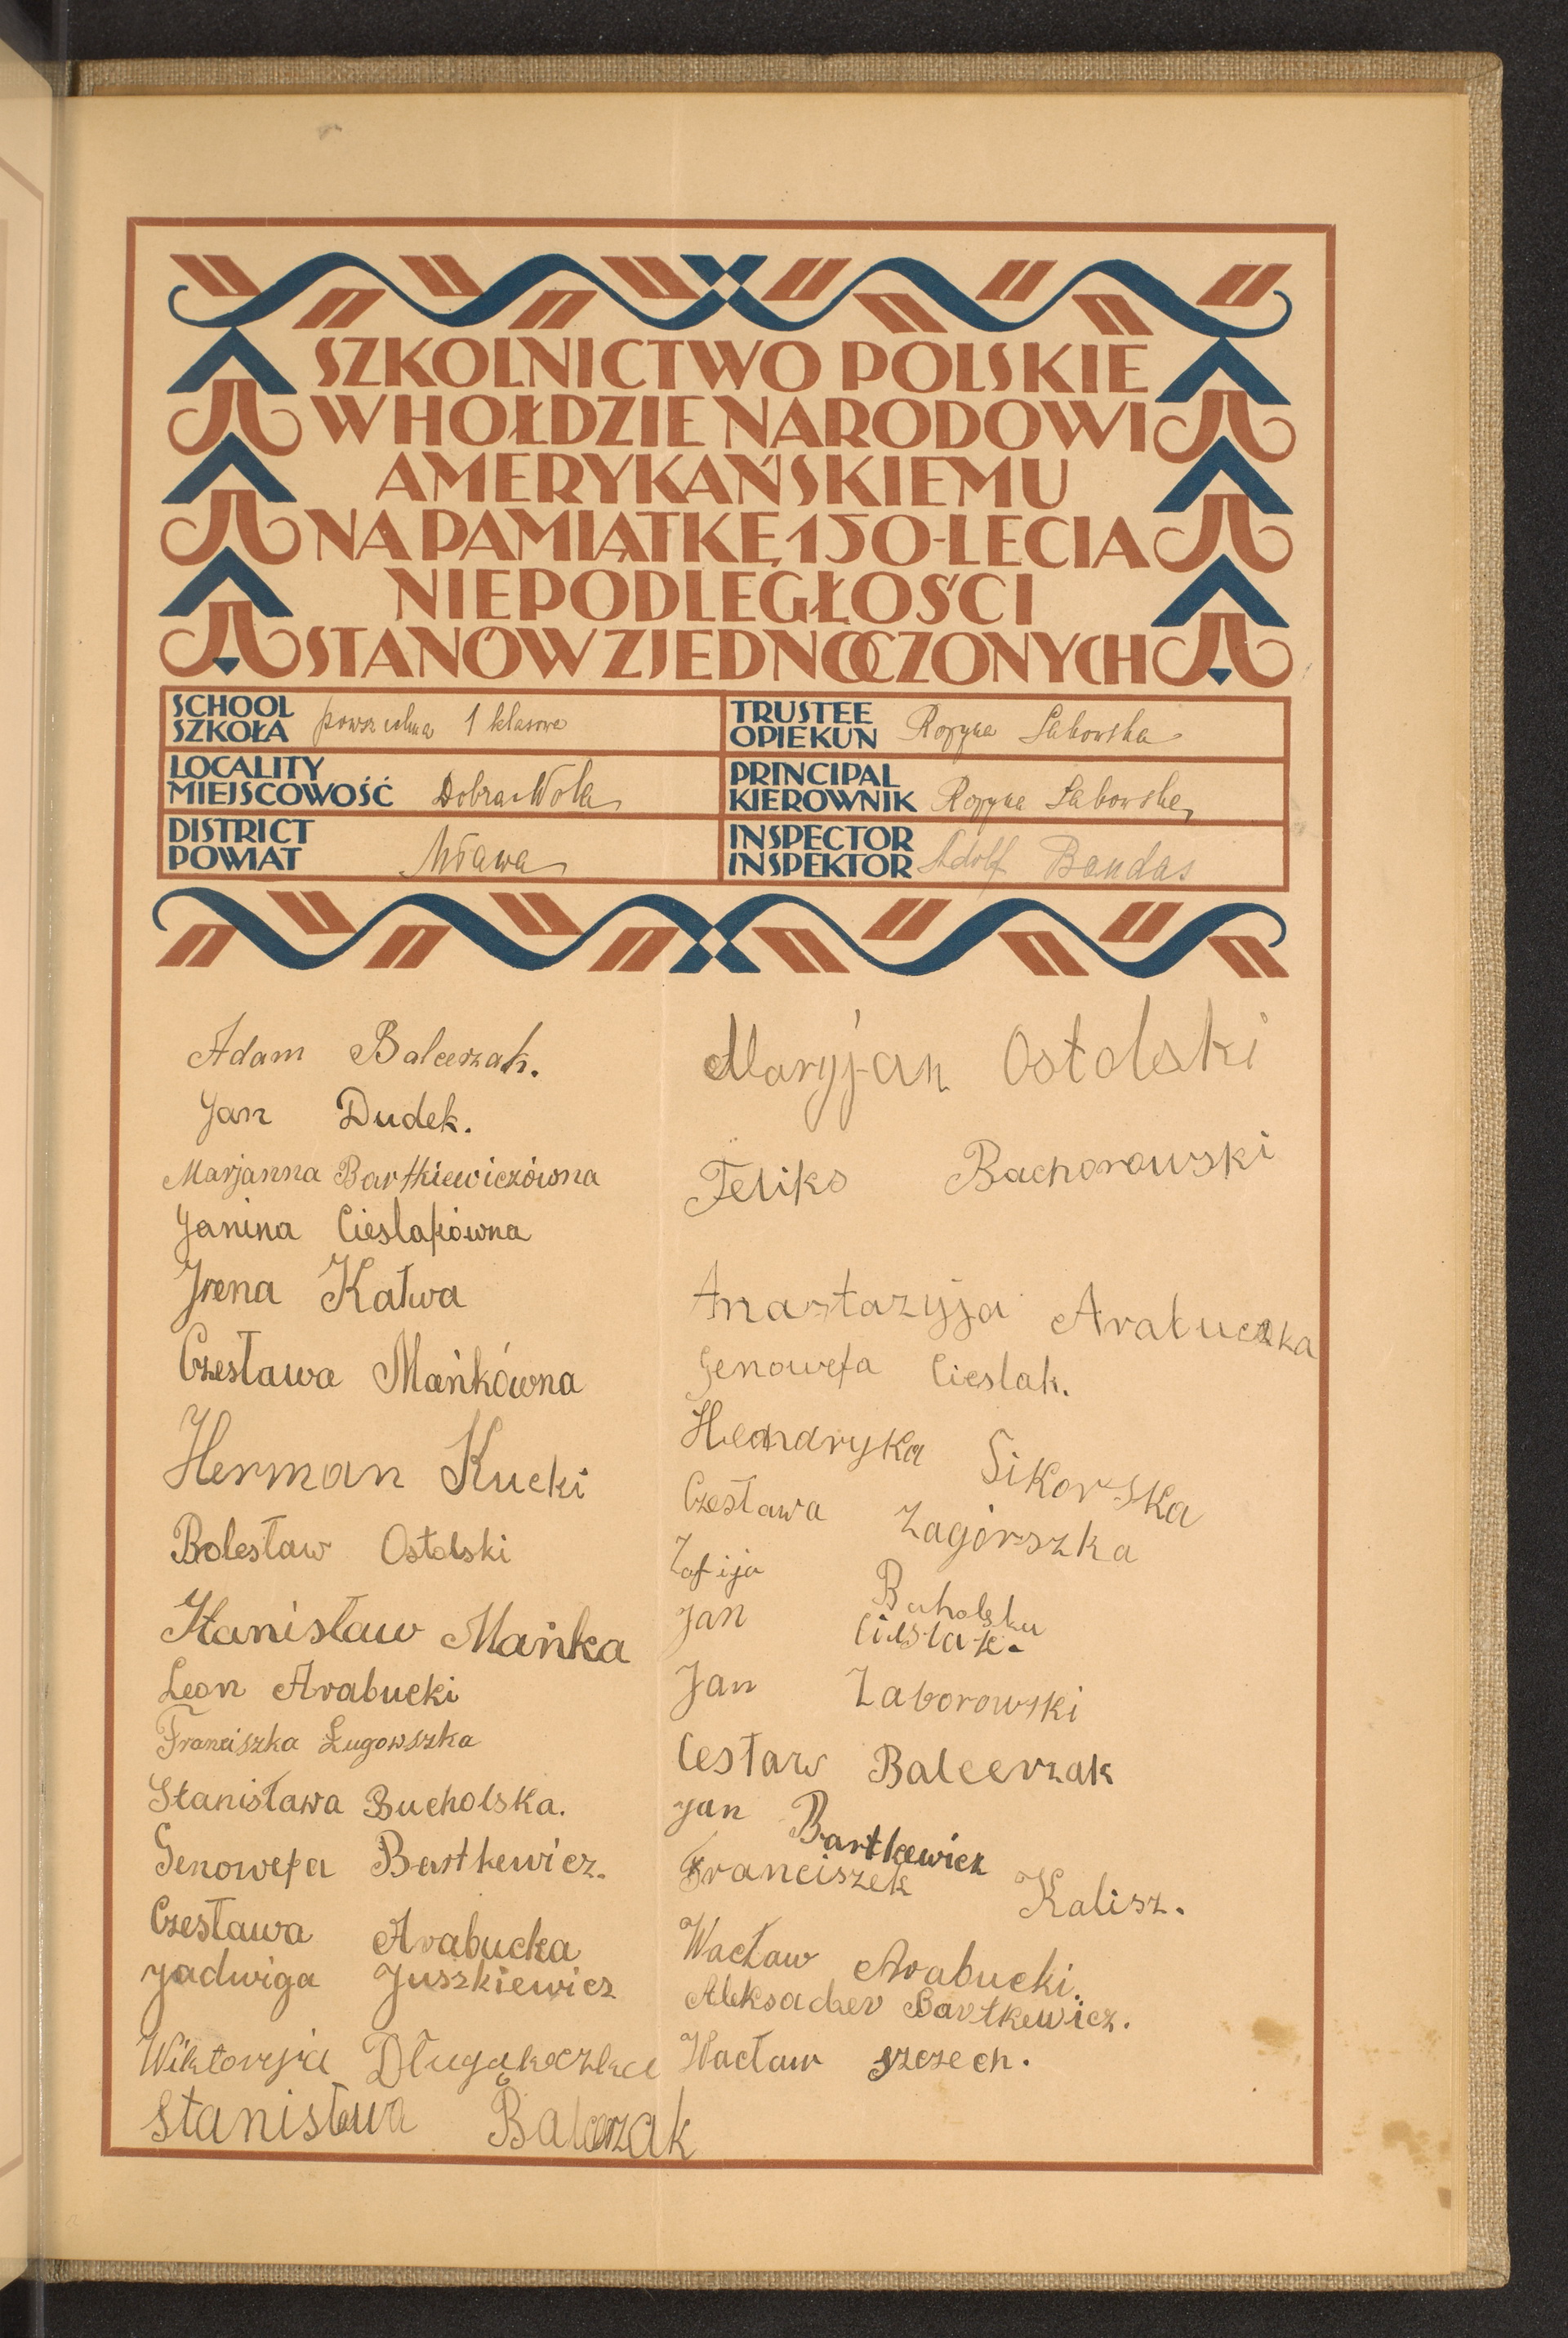 SZKOLNICTWO POLSKIE
W HOŁDZIE NARODOWI
AMERYKAŃSKIEMU
NA PAMIĄTKĘ 150-LECIA
NIEPODLEGŁOŚCI
STANÓW ZJEDNOCZONYCH
SCHOOL
SZKOŁA powszechna 1 klasowa
LOCALITY
MIEJSCOWOŚĆ Dobra-Wola
DISTRICT
POWIAT Mława
TRUSTEE
OPIEKUN
PRINCIPAL
KIEROWNIK
INSPECTOR
INSPEKTOR Adolf Bandas
Adam Balcerzak.
Jan Dudek.
Marjanna Bartkiewiczówna
Janina Cieslakówna
Irena Katwa
Czesława Mańkówna
Herman Kucki
Bolesław Ostolski
Stanisław Mańka
Leon Arabucki
Franciszka Ługowszka
Stanisława Bucholska.
Genowefa Bartkewicz.
Czesława Arabucka
Jadwiga Juszkiewicz
Wiktoryja
Stanisława Balcerzak
Maryjan Ostolski
Feliks Bachorowski
Anastazyja Arabuczka
Genowefa Cieslak.
Hendryka Sikorska
Czesława Zagórszka
Zofija
Jan Cieslak.
Jan Zaborowski
Cesław Balcerzak
Jan Bartkewicz
Franciszek Kalisz.
Wacław Arabucki.
Aleksader Bartkewicz.
Wacław szczech.